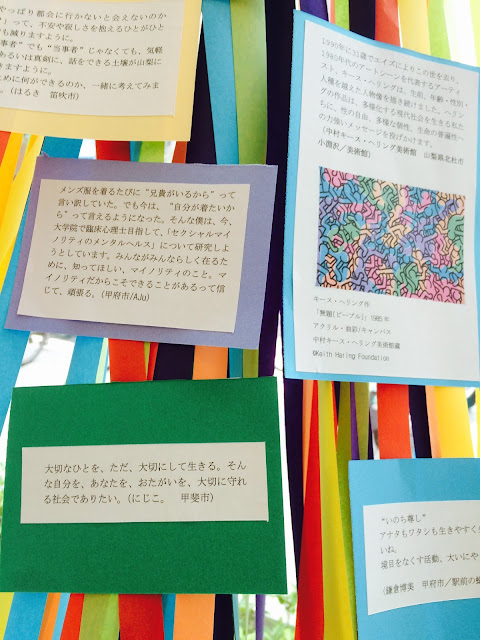 やっぱり都会に行かないと会えないのか
”って、不安や寂しさを抱えるひとがひと
も減りますように。
事者”でも“当事者”じゃなくても、気軽
あるいは真剣に、話をできる土壌が山梨に
きますように。
ために何ができるのか、一緒に考えてみま
。（はるき　笛吹市）
1990年に31歳でエイズによりこの世を去り、
1980年代のアートシーンを代表するアーティ
スト、キース・ヘリングは、生前、年齢・性別・
人種を越えた人物像を描き続けました。ヘリン
グの作品は、多様化する現代社会を生きる私た
ちに、性の自由、多様な個性、生命の普遍性へ
の力強いメッセージを投げかけます。
（中村キース・ヘリング美術館　山梨県北杜市
小淵沢／美術館）
キース・ヘリング作
「無題（ピープル）」1985年
アクリル・油彩/キャンバス
中村キース・ヘリング美術館蔵
©Keith Haring Foundation
メンズ服を着るたびに“兄貴がいるから”って
言い訳していた。でも今は、“自分が着たいか
ら”って言えるようになった。そんな僕は、今、
大学院で臨床心理士目指して、「セクシャルマイ
ノリティのメンタルヘルス」について研究しよ
うとしています。みんながみんならしく在るた
めに、知ってほしい、マイノリティのこと。マ
イノリティだからこそできることがあるって信
じて、頑張る。（甲府市/AJu）
大切なひとを、ただ、大切にして生きる。そん
な自分を、あなたを、おたがいを、大切に守れ
る社会でありたい。（にじこ。　甲斐市）
“いのち尊し”
アナタもワタシも生きやすく
いね。
境目をなくす活動、大いにや
（鎌倉博美　甲府市／駅前の